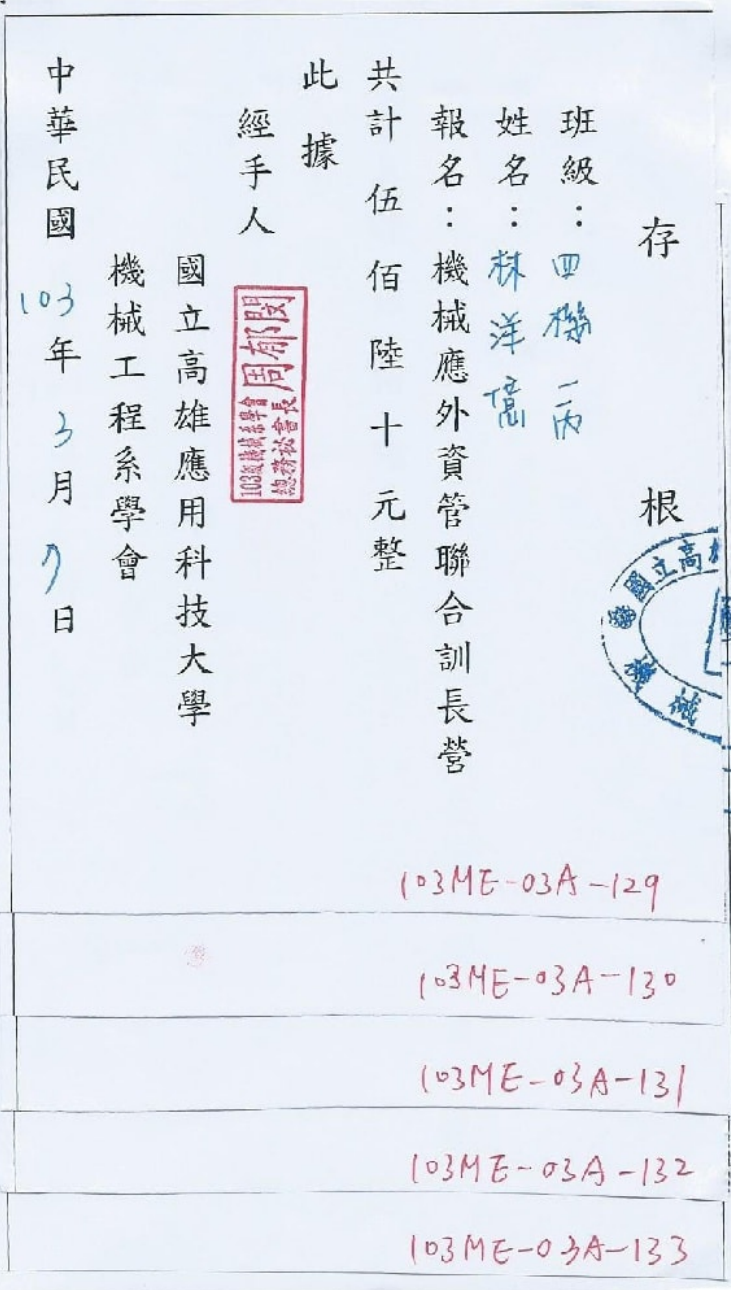 存根
班級：四機一丙
姓名：林洋
報名：機械應外資管聯合訓長營
共計伍佰陸十元整
此據
經手人
103級機械系學會
總務訟會長
周郁閔
國立高雄應用科技大學
機械工程系學會
中華民國103年3月7日
國立高雄
機械
103ME-03A-129
103ME-03A-130
103ME-03A-131
103ME-03A-132
103ME-03A-133